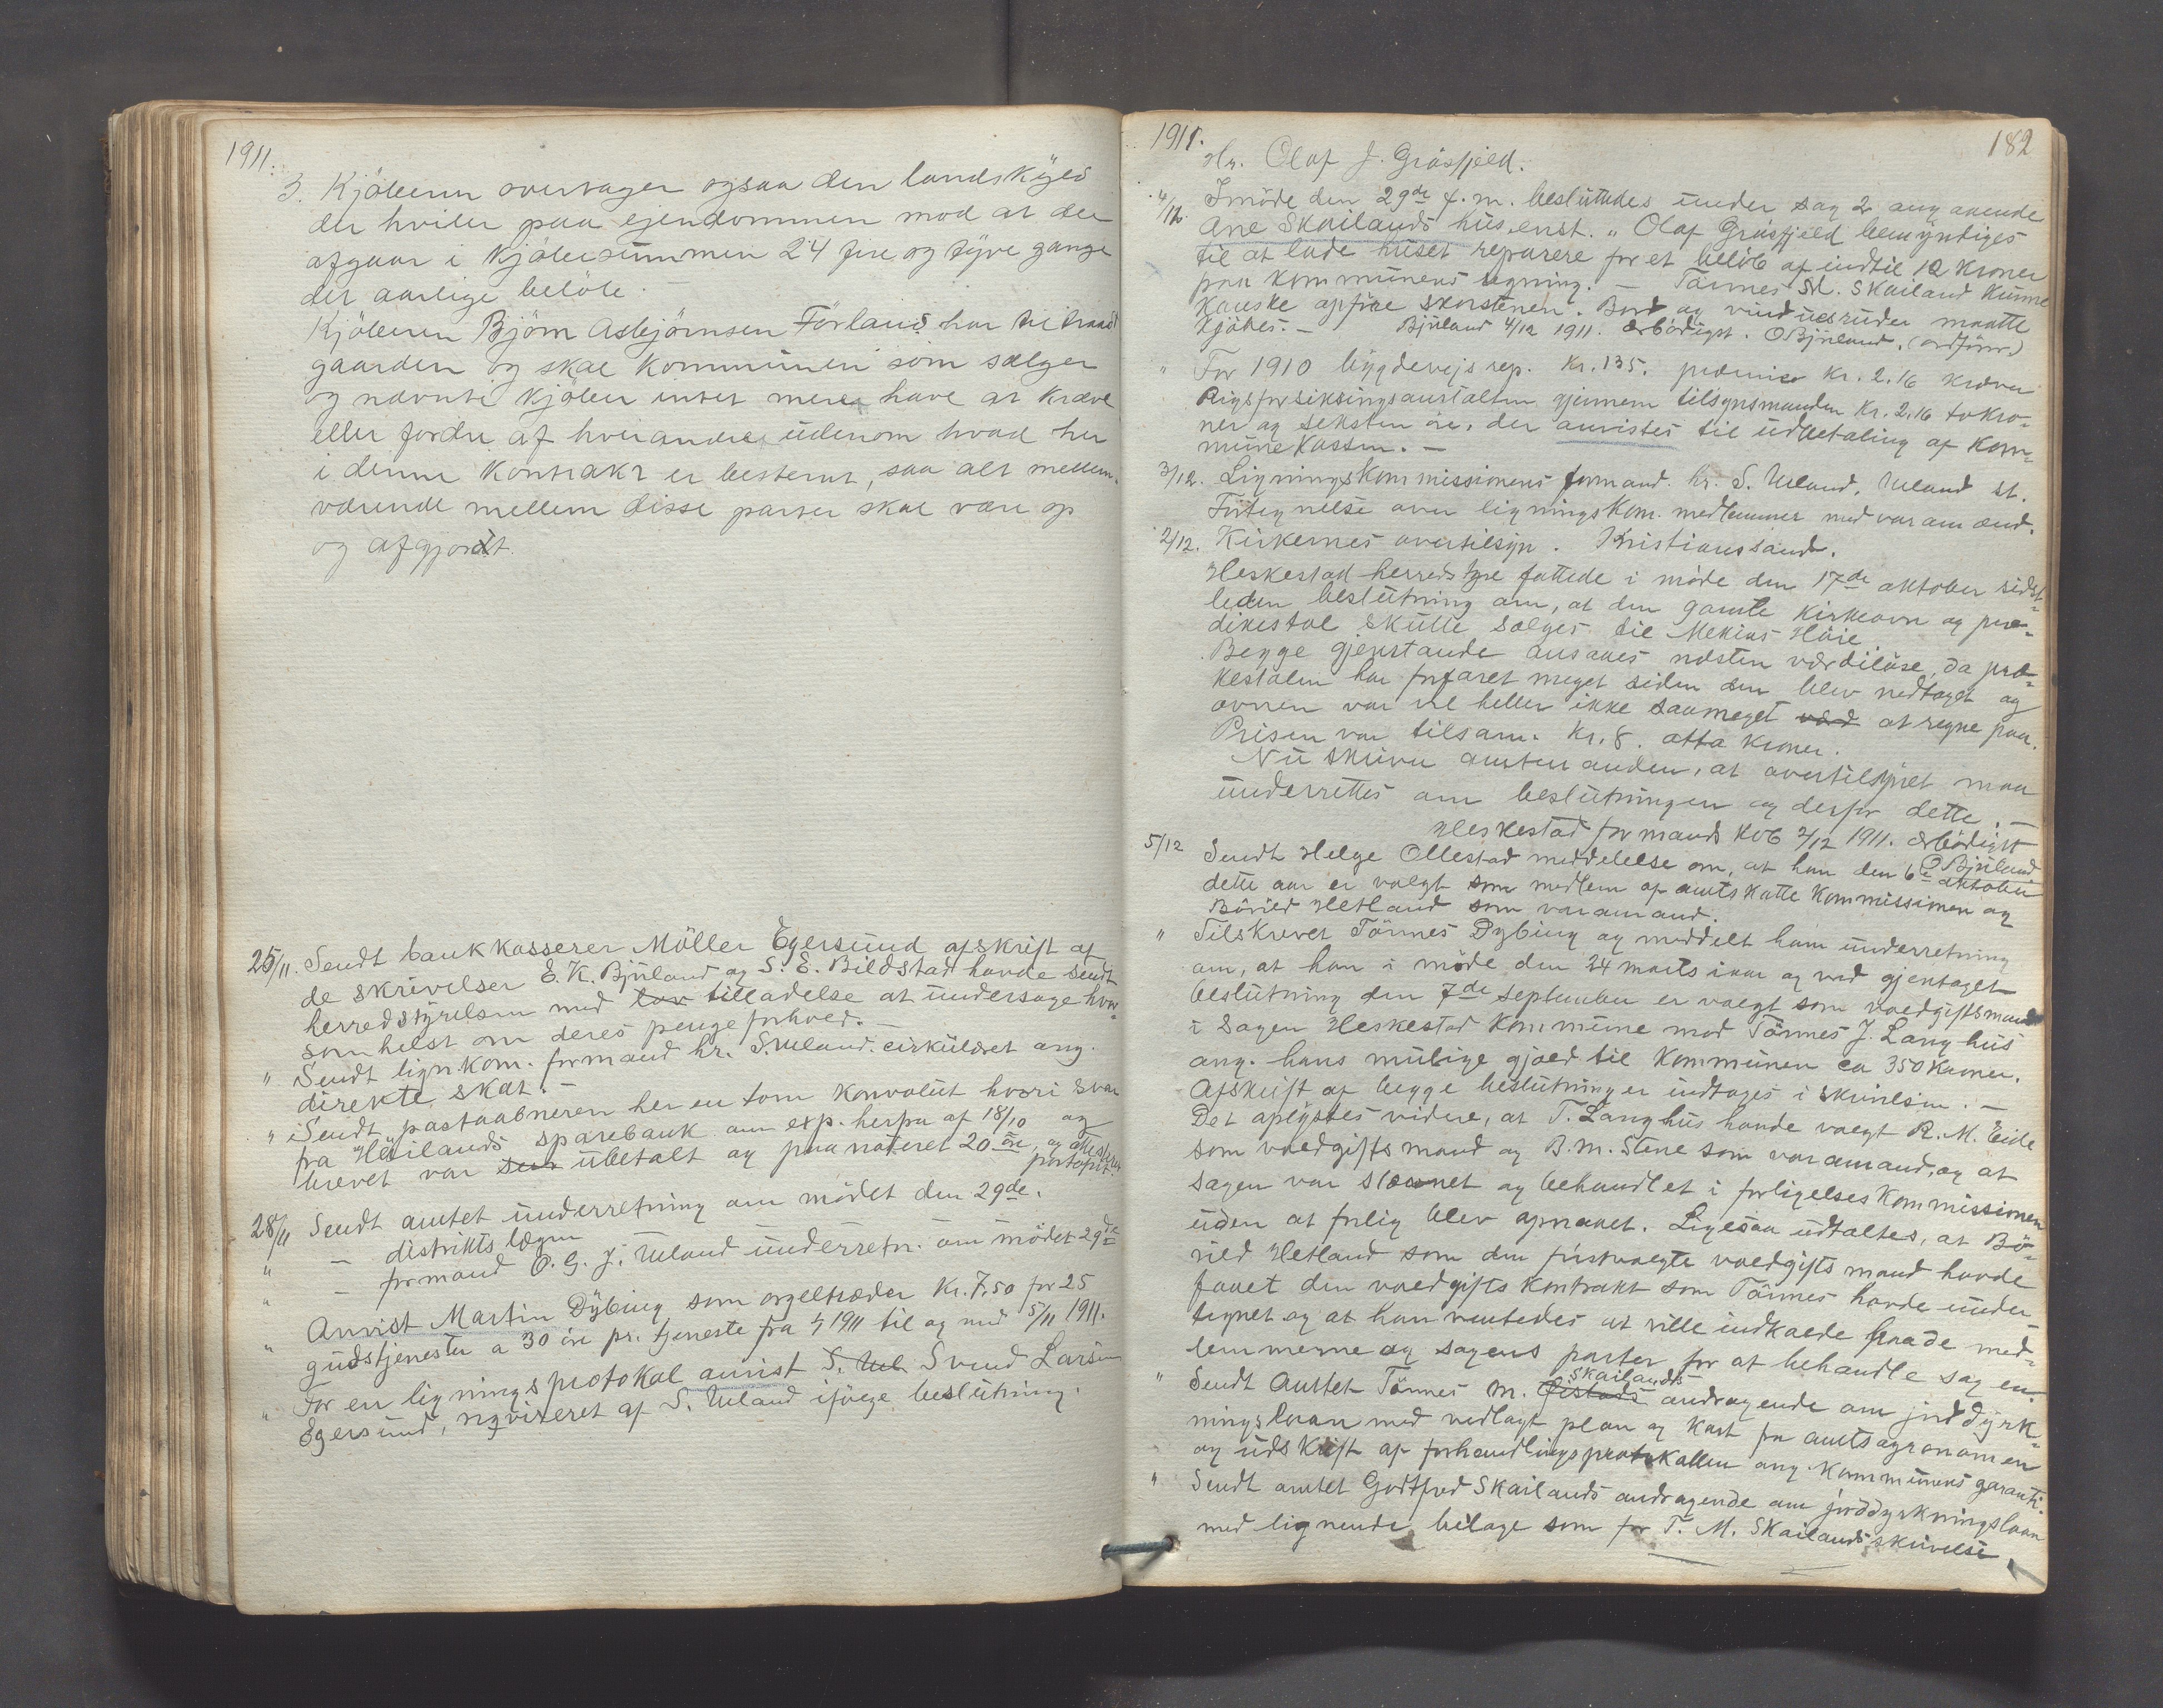 1911.
3. Kjöberen overtager ogsaa den landskyld
der hviler paa ejendommen mod at den
afgaar i kjöbesummen 24 fire og tyve gange
det aarlige belöb. —
Kjöberen Björn Asbjörnsen Förland har tiltraadt
gaarden og skal kommunen som sælger
og nævnte kjöber intet mere have at kræve
eller fordre af hverandre udenom hvad her
i denne kontrakt er bestemt, saa alt mellem-
værende mellem disse parter skal være op
og afgjordt.
25/11. Sendt bankkasserer Möller Egersund afskrift af
de skrivelser E. K. Bjuland og S. E. Bildstad havde sendt
herredstyrelsen med lov tilladelse at undersøge hvor-
somhelst om deres pengeforhold. —
" Sendt lign. kom. formand hr. S. Ueland cirkulæret ang.
direkte skat. —
" Sendt postaabneren her en tom konvolut hvori svar
fra Höilands sparebank om exp. herfra af 18/10 og
brevet var ubetalt og paanoteret 20 öre, og ønsker
portofrit.
28/11 Sendt amtet underretning om mödet den 29de.
" — distriktslægen
" — formand O. G. J. Ueland underretn. om mödet 29de
" Anvist Martin Dybing som orgeltræder Kr. 7,50 for 25
gudstjenester a 30 öre pr. tjeneste fra 1/1 1911 til og med 5/11 1911.
" For en ligningsprotokol anvist S. Uel Svend Larsen
Egersund, reqvireret af S. Ueland ifölge beslutning.
1911. 182
Hr. Olaf J. Gråsfjeld.
4/12. I möde den 29de f. m. besluttedes under sag 2 angaaende
Ane Skailands hus, enst. " Olaf Gråsfjeld bemyndiges
til at lade huset reparere for et belöb af indtil 12 kroner
paa kommunens regning. — Tönnes M. Skailand kunne
kanske opföre skorstenen. Bord og vinduesruder maatte
kjöbes. — Bjuland 4/12 1911. Ærbödigst. O Bjuland. (ordförer)
" For 1910 bygdevejs rep. Kr. 135. præmie Kr. 2.16 kræver
Rigsforsikringsanstalten gjennem tilsynsmanden Kr. 2,16 to kro-
ner og seksten öre, der anvistes til udbetaling af kom-
munekassen. —
3/12. Ligningskommissionens formand hr. S. Ueland, Ueland st.
Fortegnelse over ligningskom. medlemmer med varamænd.
2/12. Kirkernes overtilsyn. Kristianssand.
Heskestad herredstyre fattede i möde den 17de oktober sidst-
leden beslutning om, at den gamle kirkeovn og præ-
dikestol skulle sælges til Mekias Höie.
Begge gjenstande ansaaes næsten værdilöse, da præ-
kestolen har forfaret meget siden den blev nedtaget og
ovnen var vel heller ikke saa meget værd at regne paa.
Prisen var tilsam. Kr. 8. otte kroner.
Nu skriver amtmanden, at overtilsynet maa
underrettes om beslutningen og derfor dette. —
Heskestad formandskob 2/12 1911. Ærbödigst
O Bjuland
5/12 Sendt Helge Ollestad meddelelse om, at han den 6te oktober
dette aar er valgt som medlem af amtskattekommissionen og
Börild Hetland som varamand.
" Tilskrevet Tönnes Dybing og meddelt ham underretning
om, at han i möde den 24 marts iaar og ved gjentaget
beslutning den 7de september er valgt som voldgiftsmand
i sagen Heskestad kommune mod Tönnes J. Langhus
ang. hans mulige gjæld til kommunen ca 350 kroner.
Afskrift af begge beslutninger indtoges i skrivelsen. —
Det oplystes videre, at T. Langhus havde valgt R. M. Eide
som voldgiftsmand og B. M. Stene som varamand, og at
sagen var stævnet og behandlet i forligelseskommissionen
uden at forlig blev opnaaet. Ligesaa udtaltes, at Bö-
rild Hetland som den förstvalgte voldgiftsmand havde
faaet den voldgiftskontrakt som Tönnes havde under-
tegnet og at han ventedes at ville indkalde baade med-
lemmerne og sagens parter for at behandle sagen.
" Sendt Amtet Tönnes M. Skailands andragende om jorddyrk-
ningslaan med vedlagt plan og kart fra amtsagronomen
og udskrift af forhandlingsprotokollen ang. kommunens garanti.
" Sendt amtet Godtfred Skailands andragende om jorddyrkningslaan
med lignende bilage som for T. M. Skailands skrivelse.